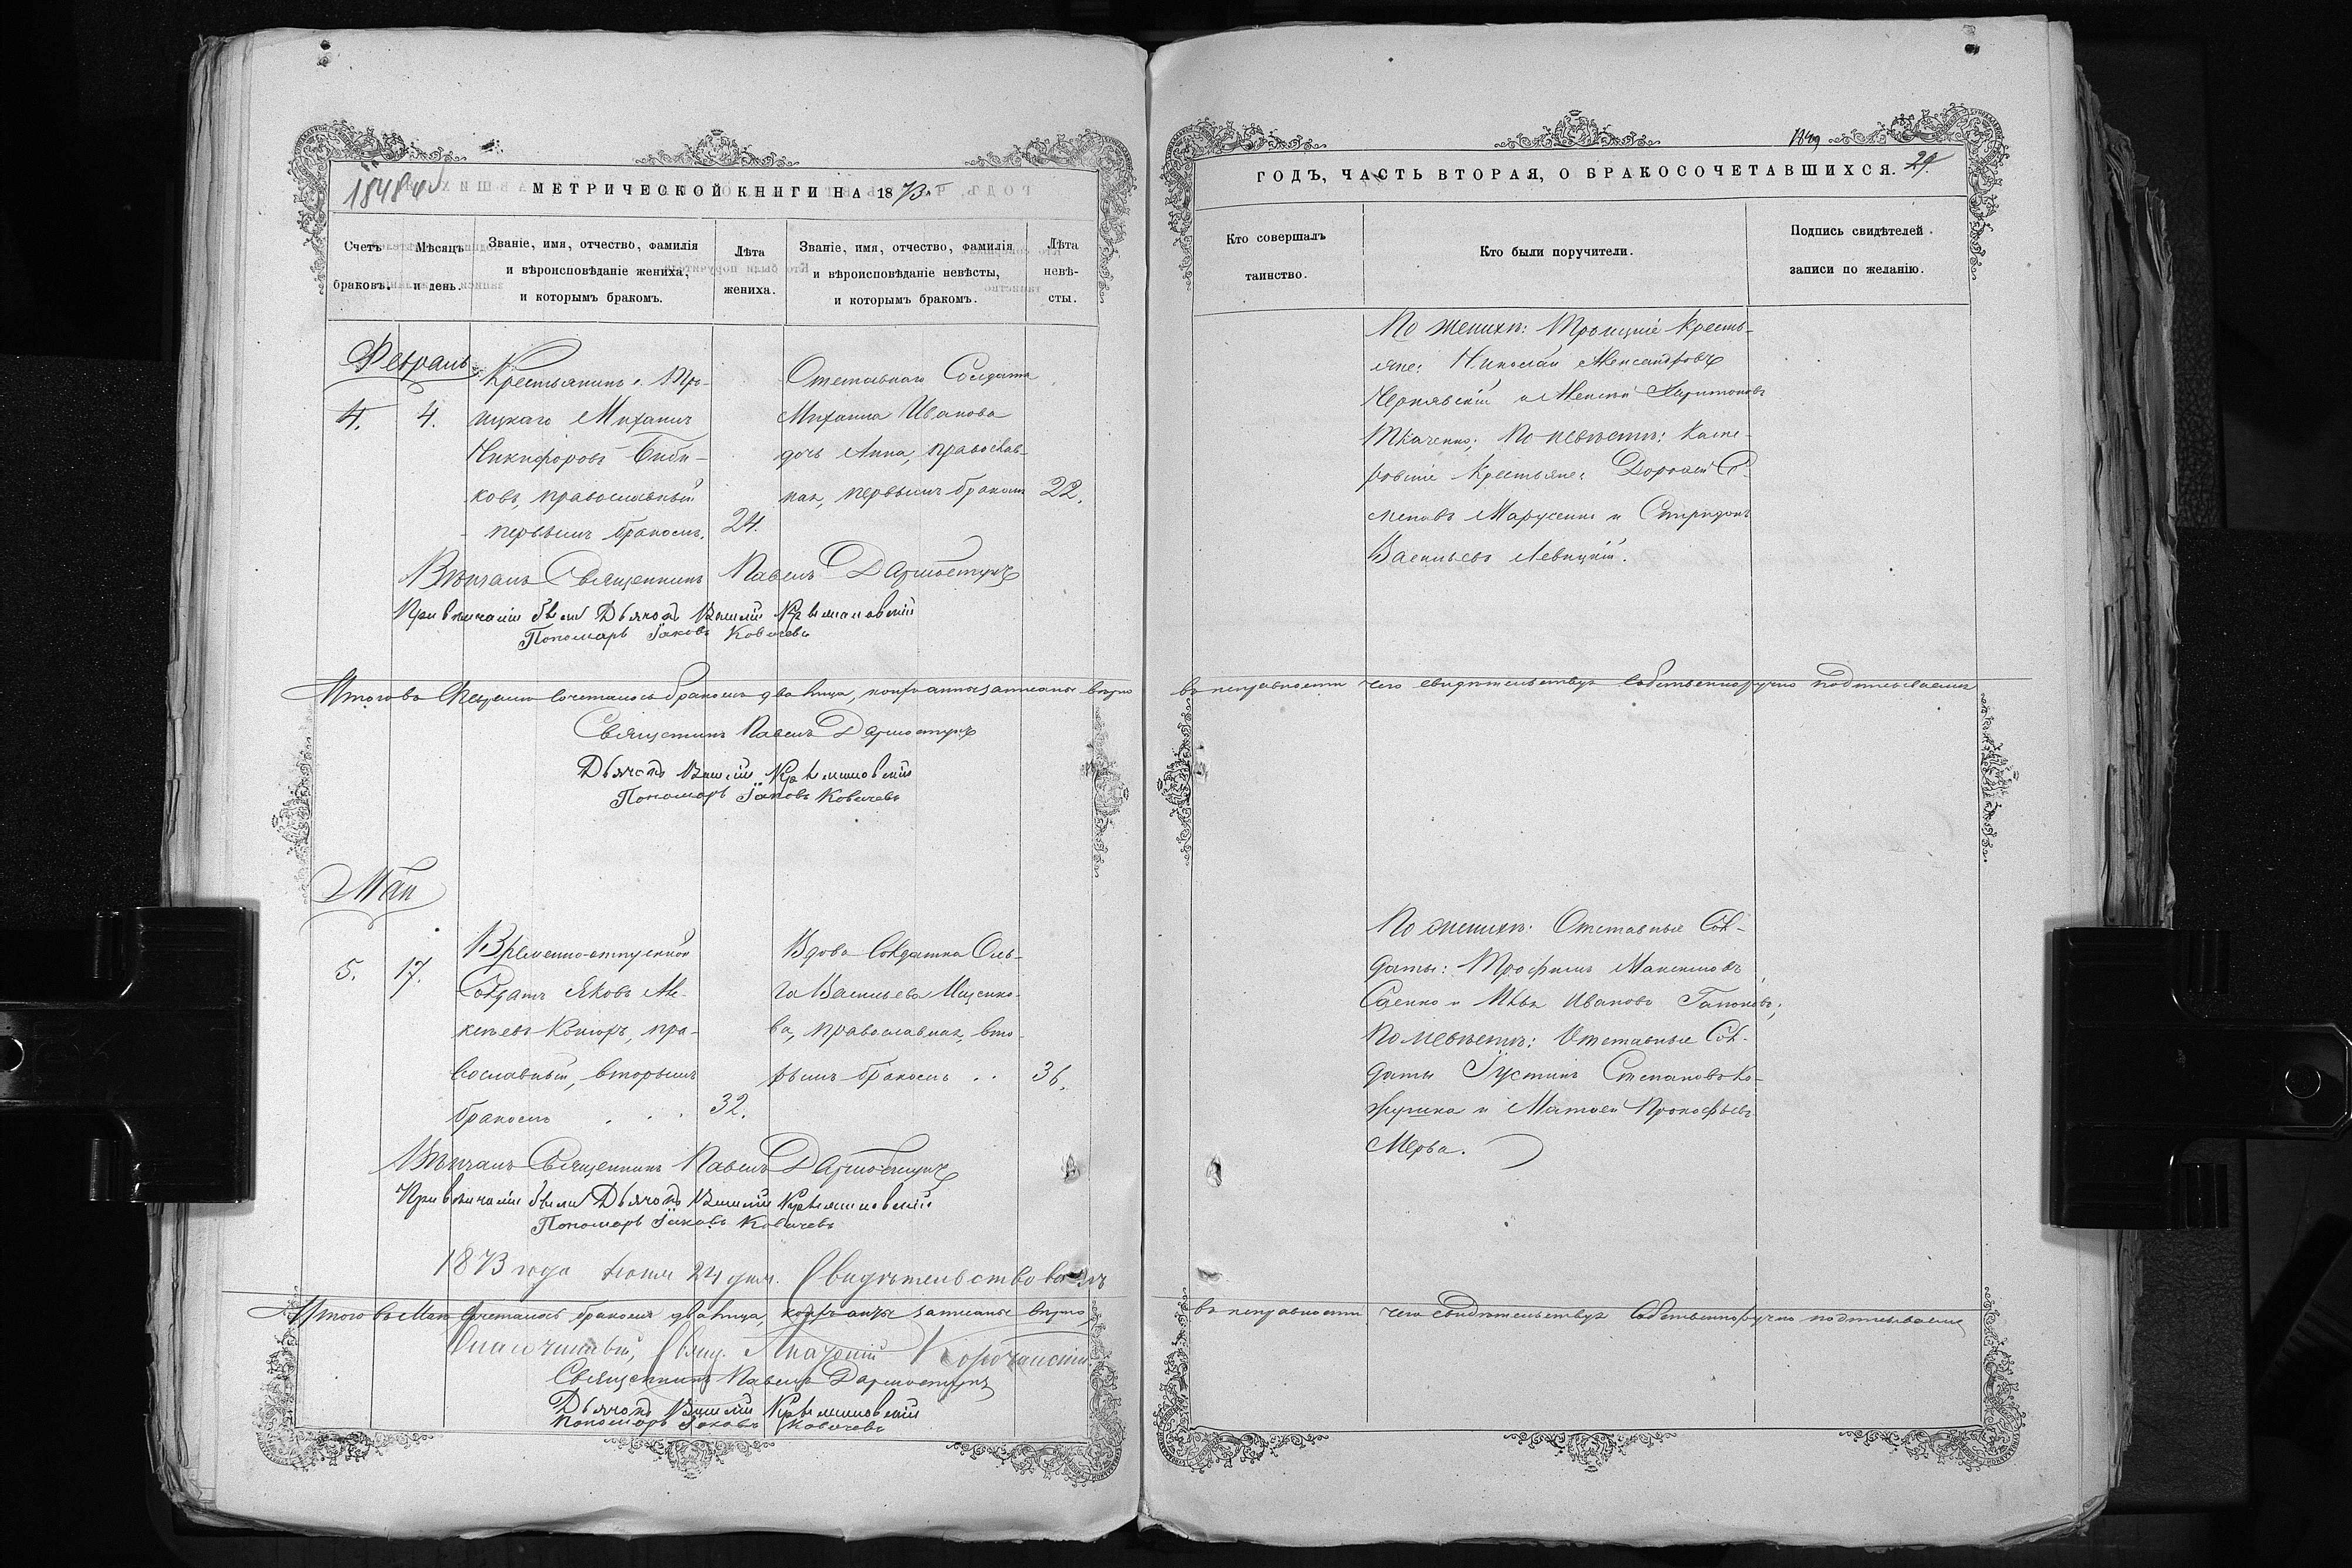 МЕТРИЧЕСКОЙ КНИГИ НА 1873.
Счетъ браковъ.
Мѣсяцъ и день.
Званіе, имя, отчество, фамилія
и вѣроисповѣданіе жениха,
и которымъ бракомъ.
Лѣта
жениха.
Званіе, имя, отчество, фамилія
и вѣроисповѣданіе невѣсты,
и которымъ бракомъ.
Лѣта
невѣ-
сты.
Февраль
4.
4.
Крестьянинъ с. Тро-
ицкаго Михаилъ
Никифоровъ Биби-
ковъ, православный
первымъ бракомъ.
24.
Отставнаго Солдата
Михаила Иванова
дочь Анна, православ-
ная, первымъ бракомъ
22.
Вѣнчалъ Священникъ Павелъ
При вѣнчаніи были Дьячокъ
Пономарь Іаковъ Ковачевъ
Итого въ Февралѣ сочеталось бракомъ два лица, записаны вѣрно
Священникъ Павелъ
Дьячокъ
Пономарь Іаковъ Ковачевъ
Май
5.
17.
Временно-отпускной
Солдатъ Яковъ Але-
ксѣевъ православный, вторымъ
бракомъ
32.
Вдова Солдатка Оль-
га Васильева Ищенко-
ва, православная, вто-
рымъ бракомъ
36.
Вѣнчалъ Священникъ Павелъ
При вѣнчаніи были Дьячокъ
Пономарь Іаковъ Ковачевъ
1873 года 24 дня. Свидѣтельствовалъ
Итого въ Маѣ сочеталось бракомъ два лица, записаны вѣрно,
Благочинный, Свящ.
Священникъ Павелъ
Дьячокъ
Пономарь Іаковъ Ковачевъ
29.
ГОДЪ, ЧАСТЬ ВТОРАЯ, О БРАКОСОЧЕТАВШИХСЯ.
Кто совершалъ
таинство.
Кто были поручители.
Подпись свидѣтелей
записи по желанію.
По женихѣ: Троицкіе Кресть-
яне: Николай Александровъ
Чернявскій и Алексѣй Харитоновъ
Ткаченко; По невѣстѣ:
Крестьяне: Дорофей Се-
меновъ Марусенко и Спиридонъ
Васильевъ Левицкій.
въ исправности чего свидѣтельствуя собственноручно подписываемся
По женихѣ: Отставные Сол-
даты: Трофимъ Максимовъ
Саенко и Илья Ивановъ Гапоновъ;
По невѣстѣ: Отставные Сол-
даты Іустинъ Степановъ Ко-
и Матѳей Прокофьевъ
Мерва.
въ исправности чего свидѣтельствуя собственноручно подписываемся